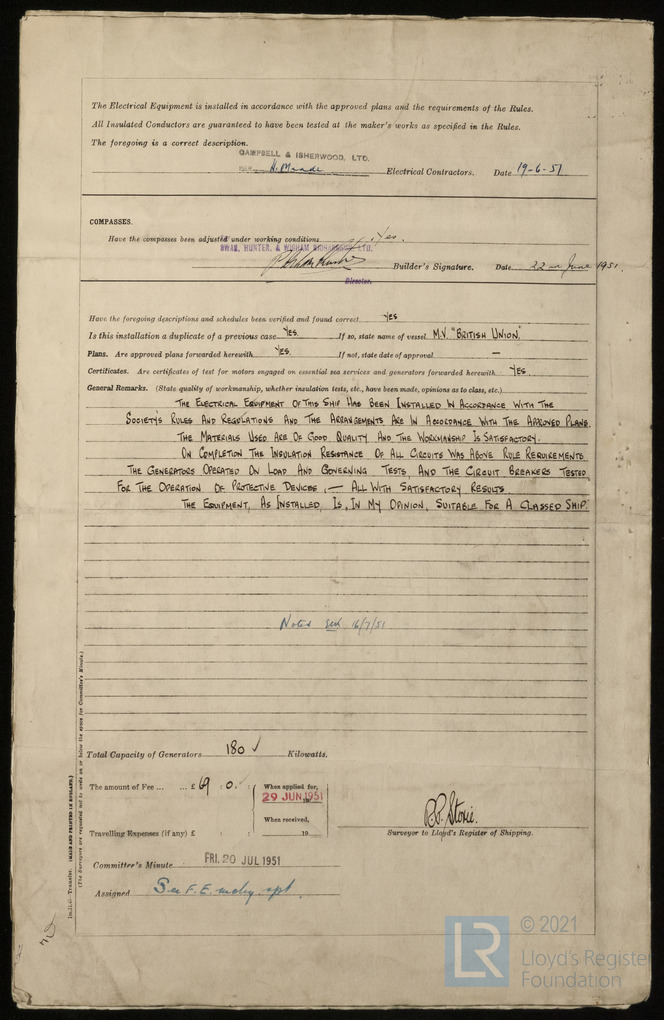 The Electrical Equipment is installed in accordance with the approved plans and the requirements of the Rules.
All Insulated Conductors are guaranteed to have been tested at the maker's works as specified in the Rules.
The foregoing is a correct description.
CAMPBELL & ISHERWOOD, LTD.
H. Meade Electrical Contractors. Date 19-6-51
COMPASSES.
Have the compasses been adjusted under working conditions Yes.
SWAN, HUNTER, & WIGHAM RICHARDSON, LTD.
Builder's Signature. Date 22nd June 1951.
Director.
Have the foregoing descriptions and schedules been verified and found correct YES
Is this installation a duplicate of a previous case YES. If so, state name of vessel M.V. "BRITISH UNION."
Plans. Are approved plans forwarded herewith YES. If not, state date of approval —
Certificates. Are certificates of test for motors engaged on essential sea services and generators forwarded herewith YES.
General Remarks. (State quality of workmanship, whether insulation tests, etc., have been made, opinions as to class, etc.)
THE ELECTRICAL EQUIPMENT OF THIS SHIP HAS BEEN INSTALLED IN ACCORDANCE WITH THE
SOCIETY'S RULES AND REGULATIONS AND THE ARRANGEMENTS ARE IN ACCORDANCE WITH THE APPROVED PLANS.
THE MATERIALS USED ARE OF GOOD QUALITY AND THE WORKMANSHIP IS SATISFACTORY.
ON COMPLETION THE INSULATION RESISTANCE OF ALL CIRCUITS WAS ABOVE RULE REQUIREMENTS
THE GENERATORS OPERATED ON LOAD AND GOVERNING TESTS, AND THE CIRCUIT BREAKERS TESTED
FOR THE OPERATION OF PROTECTIVE DEVICES, — ALL WITH SATISFACTORY RESULTS.
THE EQUIPMENT, AS INSTALLED, IS, IN MY OPINION, SUITABLE FOR A CLASSED SHIP.
Noted 16/7/51
Total Capacity of Generators 180 ✓ Kilowatts.
The amount of Fee ... ... £ 69 : 0 : When applied for,
29 JUN 1951
When received,
Travelling Expenses (if any) £ : : 19
P.P. Storie.
Surveyor to Lloyd's Register of Shipping.
Committee's Minute FRI. 20 JUL 1951
Assigned See F.E. mchy. rpt.
(MADE AND PRINTED IN ENGLAND.)
(The Surveyors are requested not to write on or below the space for Committee's Minute.)
LR
© 2021
Lloyd's Register
Foundation